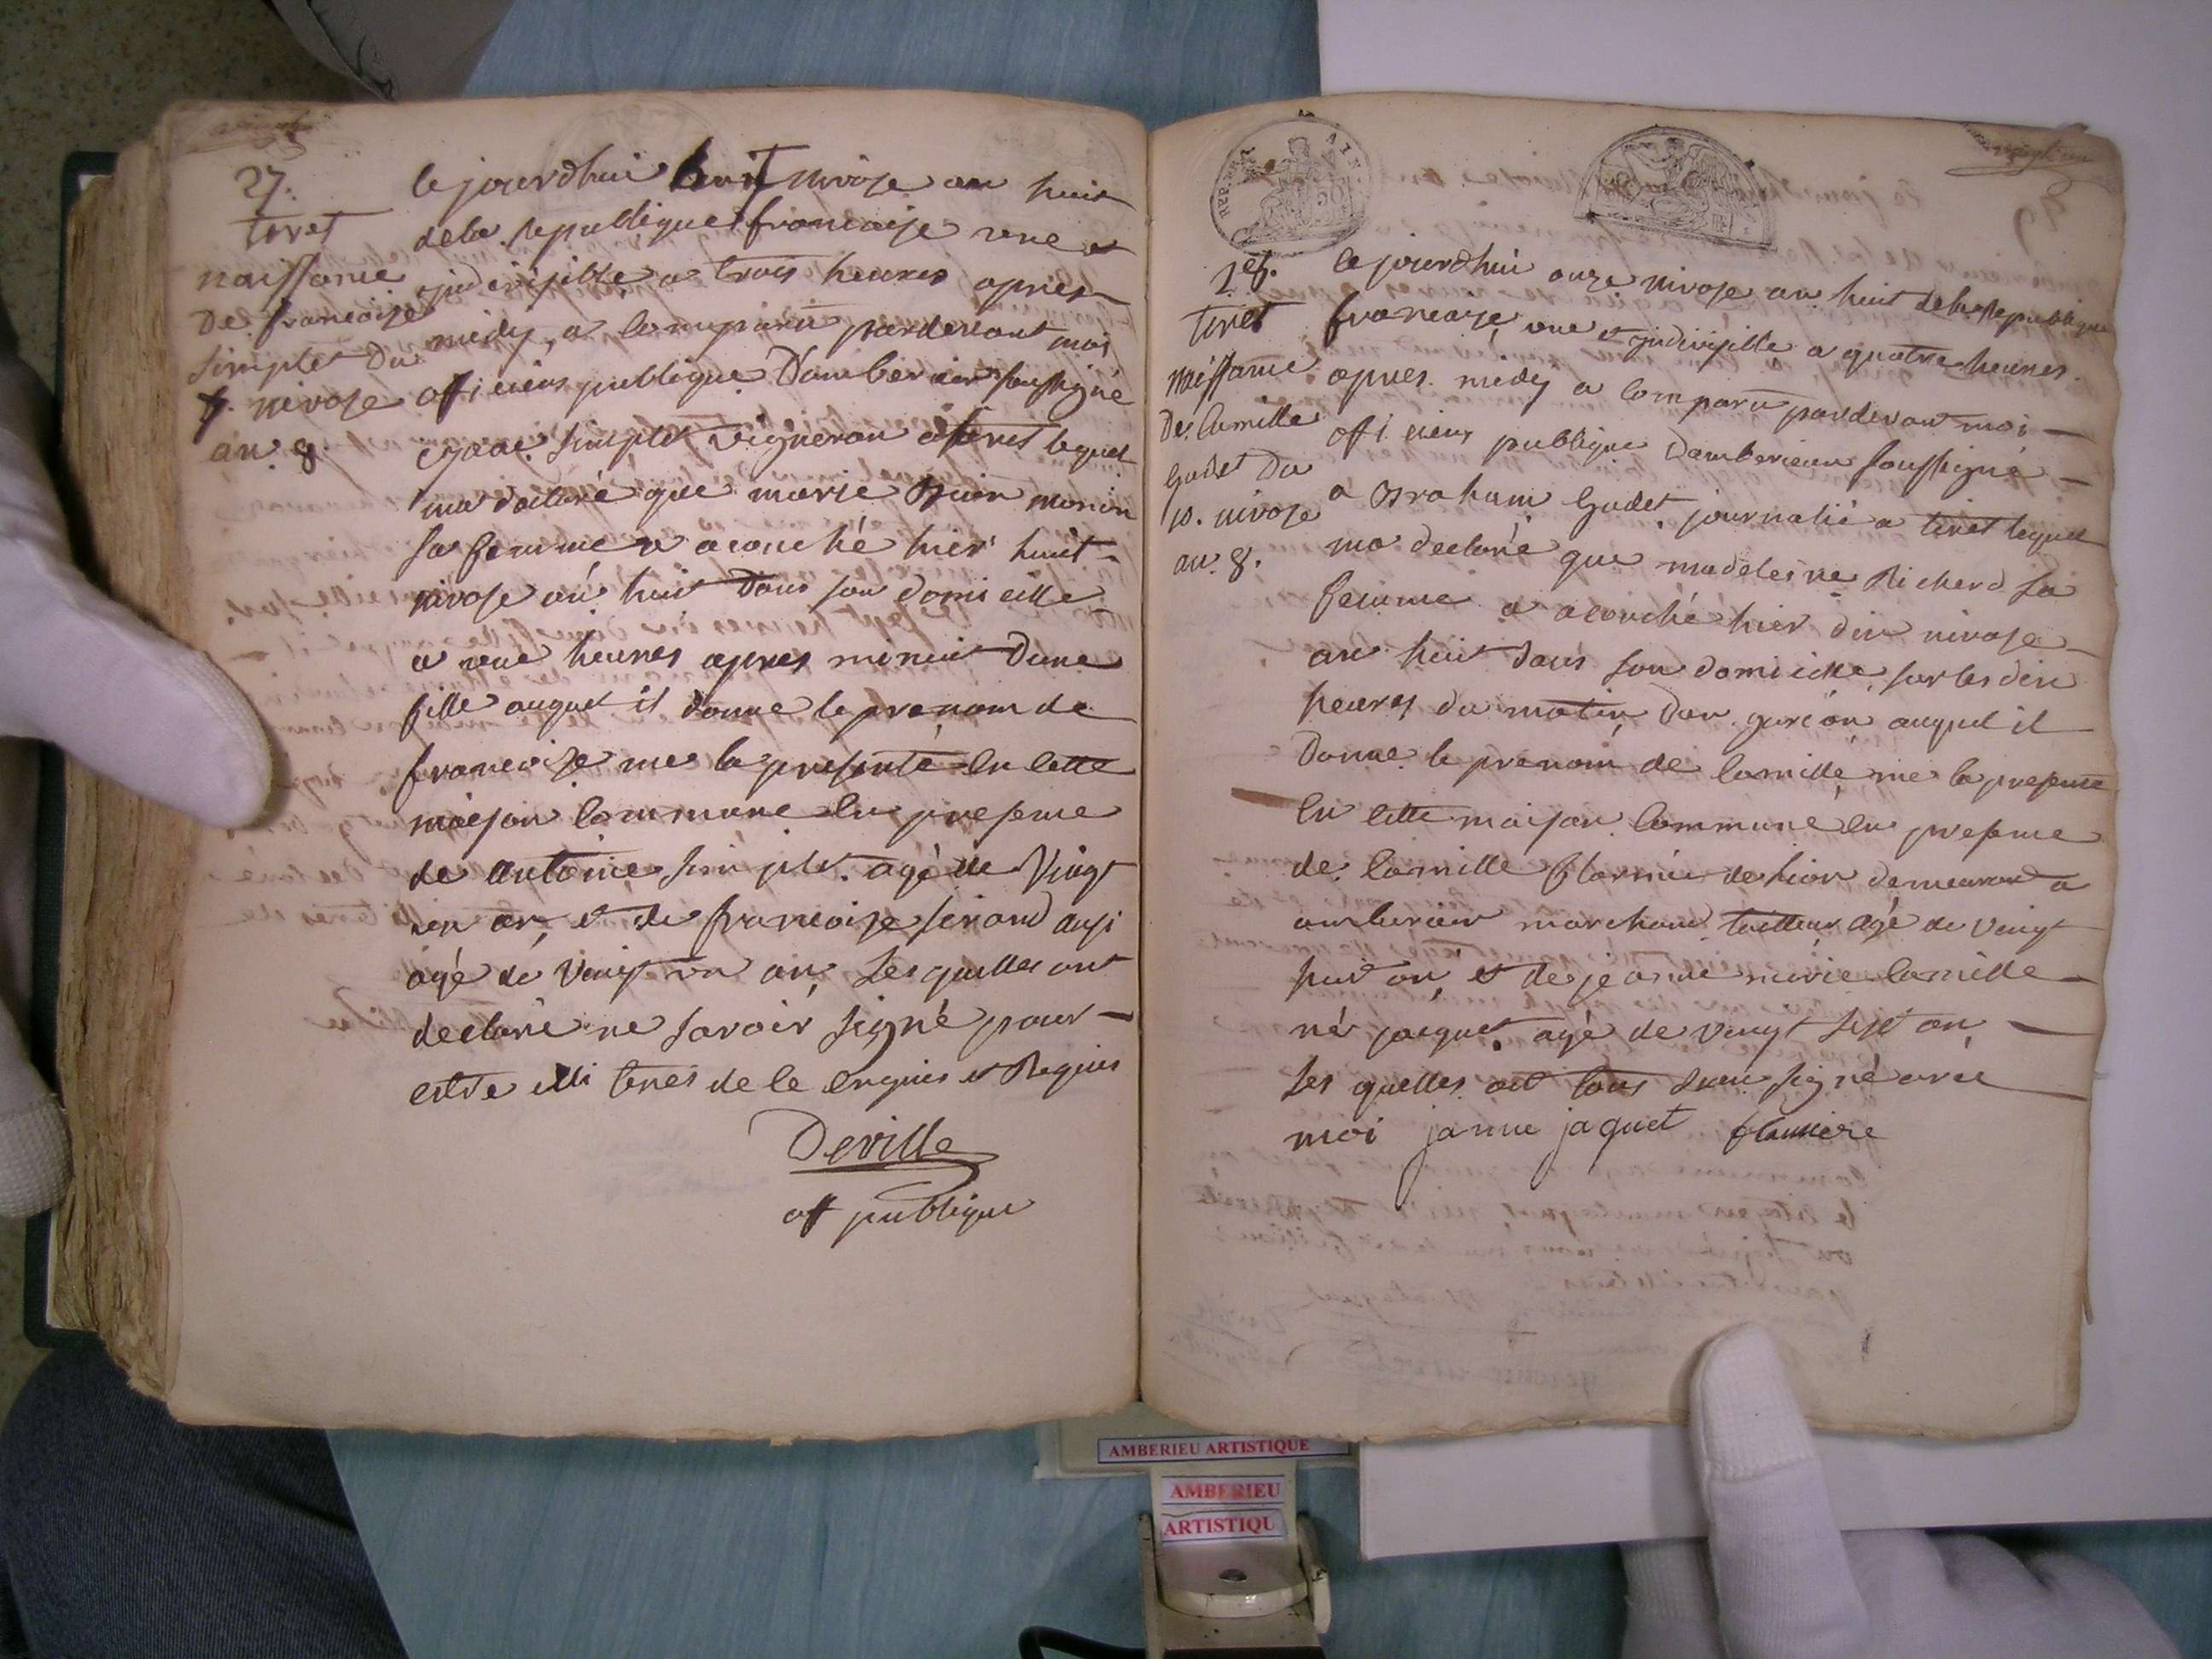 27.
tiret
naissance
De francoise
simplet Du
nivose
an. 8.
cejourdhui huit nivose an huit
dela republique francaise une et
indivisible a trois heures apres
midy, a comparu pardevant moi
officiers publique Dambérieu soussigné
simplet vigneron a tiret lequel
ma declaré que marie monin
sa femme a acouché hier huit
nivose an huit Dans son domicille
a une heures apres minuit Dune
fille auquel il donne le prenom de
francoise me la presenté en cette
maison commune en presence
de antoine simplet. agé de Vingt
un an, et de francoise sirand ausi
agé de Vingt un an, Lesquelles ont
declaré ne savoir signé pour
estre de le enquis et Requis
Deville
off publique
28.
tiret
naissance
De. Camille
Godet Du
10. nivose
an. 8.
cejourdhui onze nivose an huit dela Republique
francaise, une et indivisible a quatre heures.
apres. midy a comparu pardevant moi
officiers publique Damberieu soussigné
a Godet, journalié a tiret lequel
ma declaré que madeleine Richerd sa
femme a acouché hier dix nivose
an huit dans son domicille, sur les dix
heures du matin Dun garçon auquel il
Donne le prenom de Camille, me la presenté
en cette maison commune en presence
de. Camille de lion demeurant a
ambérieu marchand tailleur agé de Vingt
huit an, et de jeanne marie Camille
né jaquet. agé de vingt sept an,
Les quelles ont tous signé avec
moi janne jaquet flamiere
REP. FRA.
AIN.
AMBERIEU ARTISTIQUE
AMBERIEU
ARTISTIQU